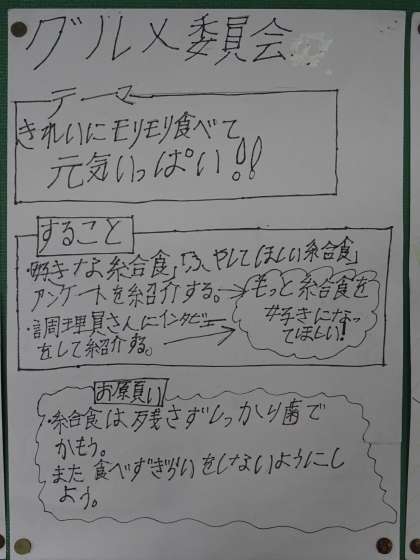 グルメ委員会
テーマ
きれいにモリモリ食べて
元気いっぱい!!
すること
・「好きな給食」「ふやしてほしい給食」
アンケートを紹介する。→
・調理員さんにインタビュー
をして紹介する。→
もっと給食を
好きになっ
てほしい!
お願い
・給食は残さずしっかり歯で
かもう。
また食べずぎらいをしないようにし
よう。